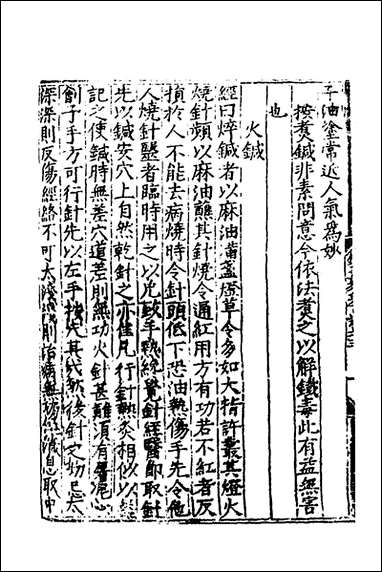 子油塗常近人氣爲妙
按煑鍼非素問意今依法煑之以解鐵毒此有益無害
也
火鍼
經曰焠鍼者以麻油滿盞燈草令多如大指許叢其燈火
燒針頻以麻油蘸其針燒令通紅用方有功若不紅者反
損於人不能去病燒時令針頭低下恐油熱傷手先令他
人燒針醫者臨時用之以免手熱終覺針紅醫即取針
先以鍼安穴上自然乾針之亦佳凡行針點灸相似以
記之使鍼時無差穴道差則無功火針甚難須有屠兒心
劊子手方可行針先以左手按定其穴然後針之切忌太
深深則反傷經絡不可太淺淺則治病無功消息取中